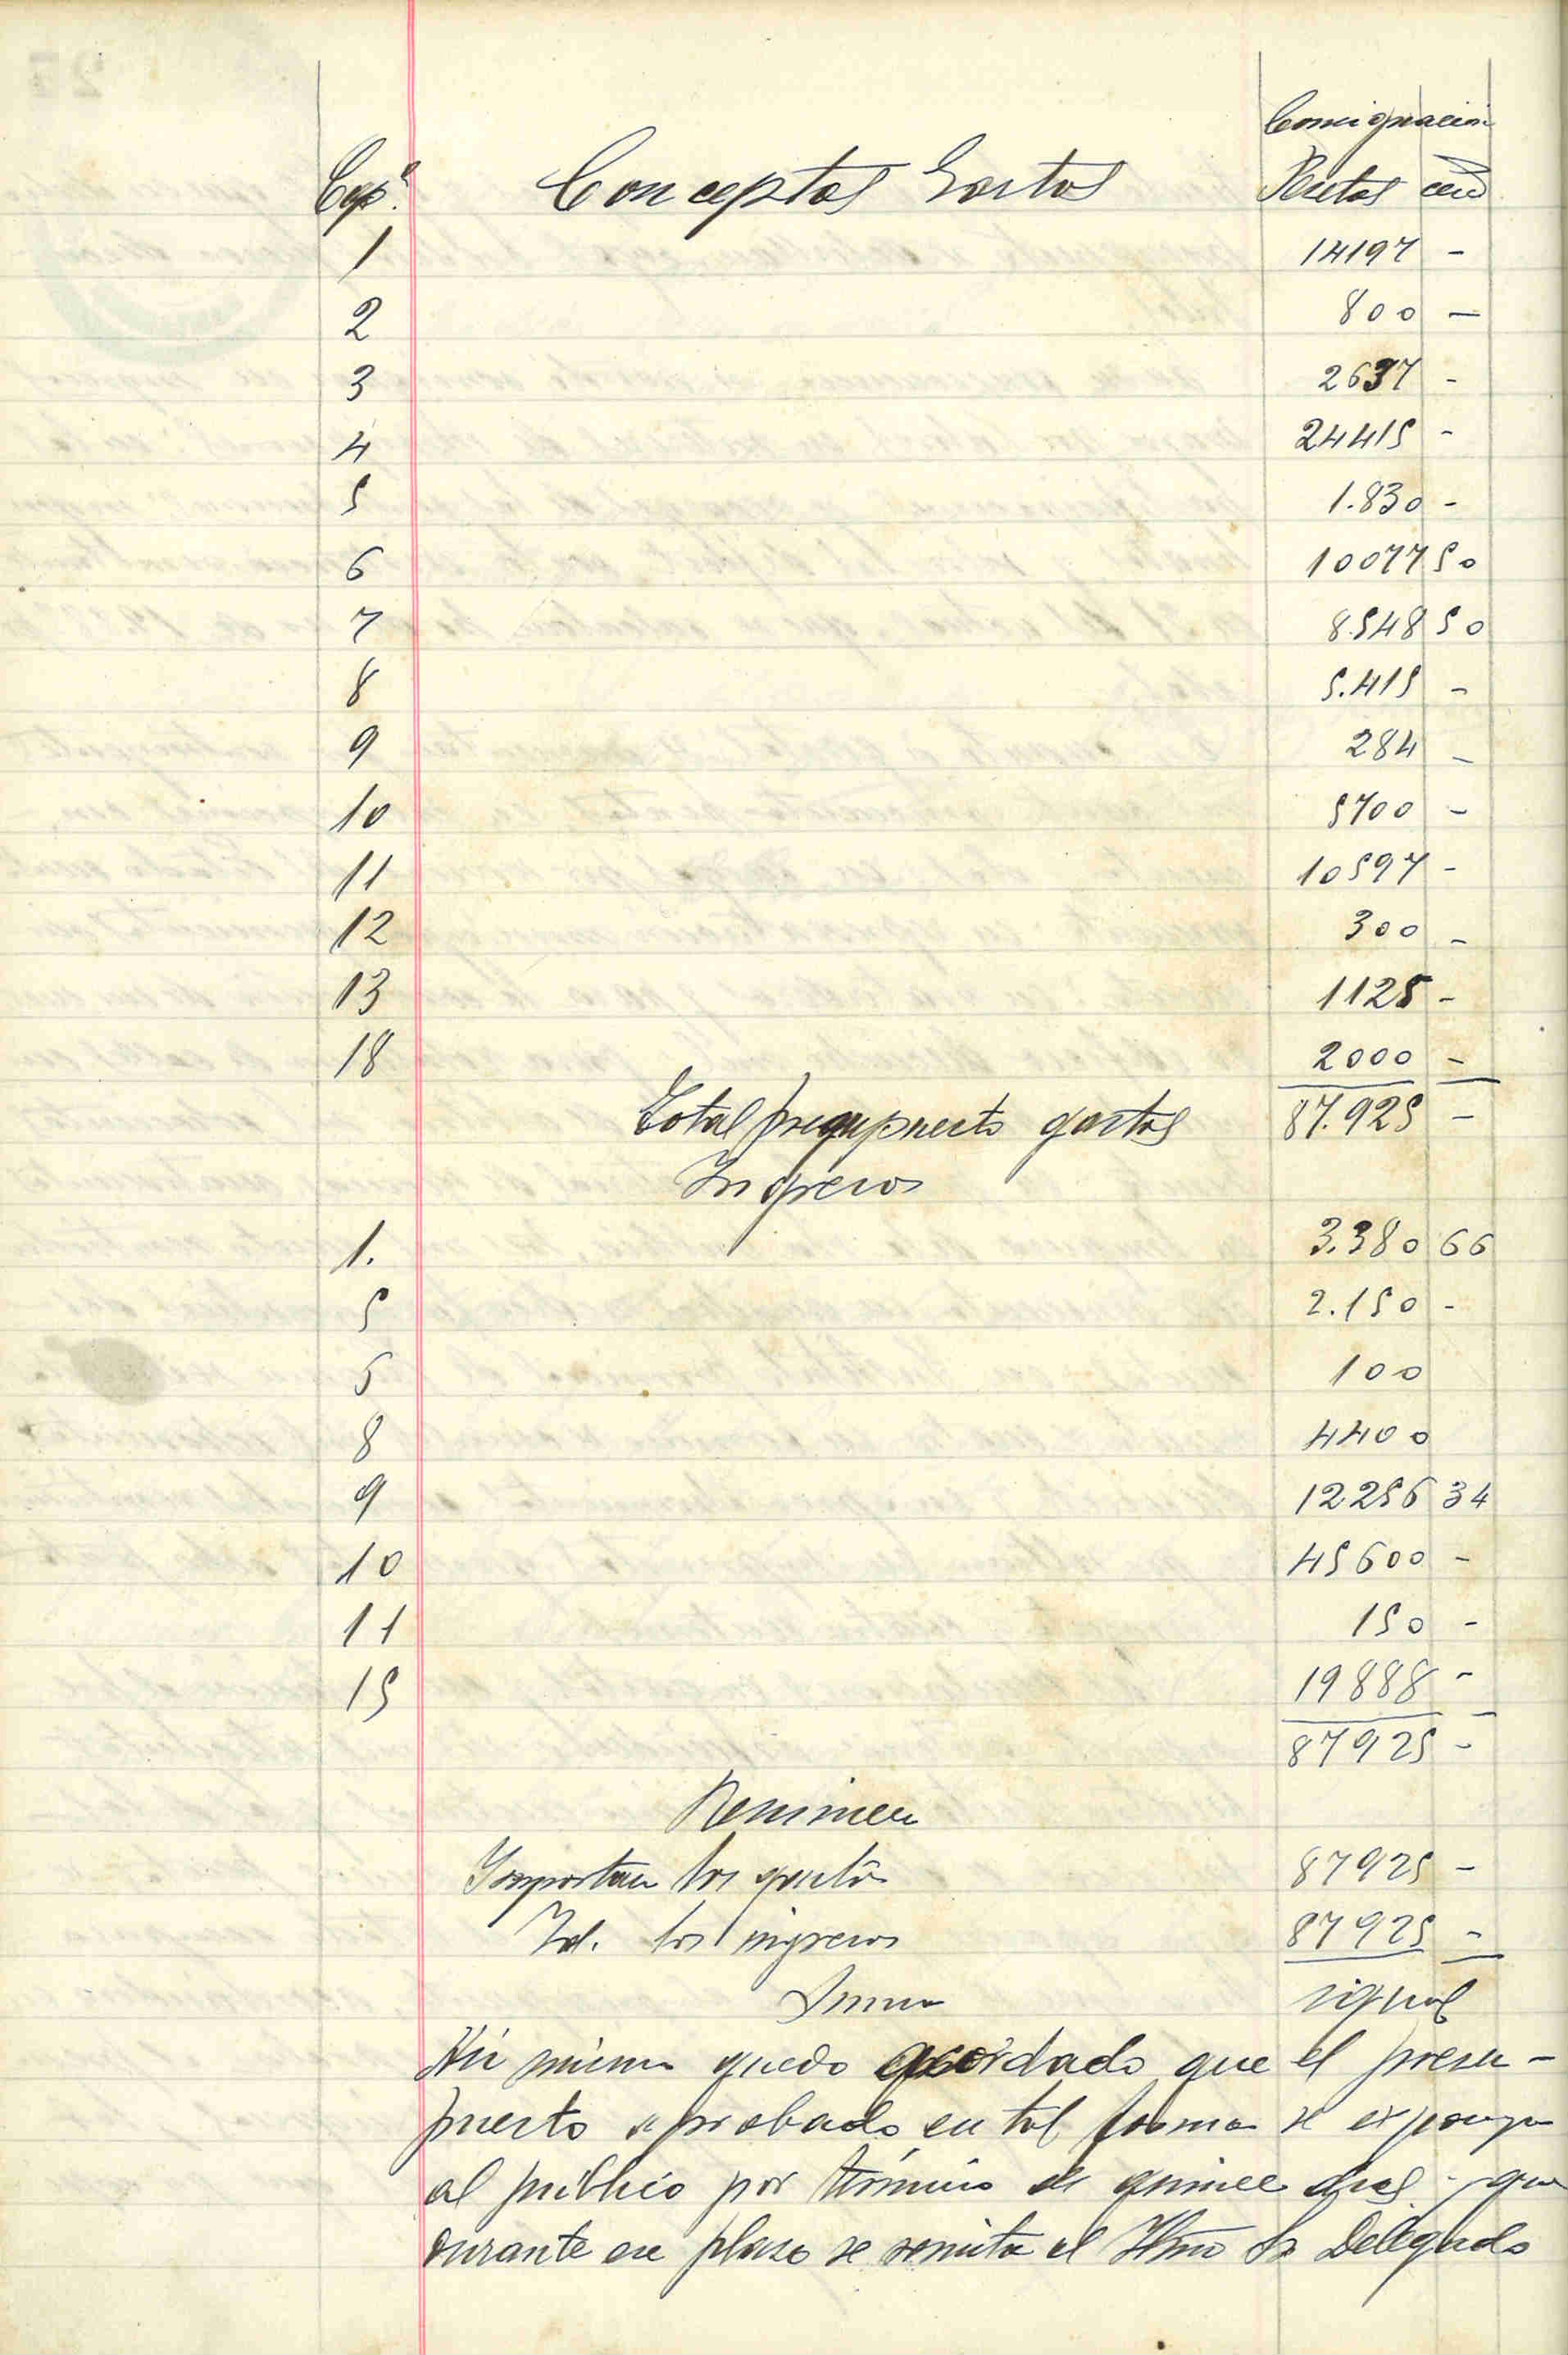 Consignacion
Cap.º Conceptos Gastos Pesetas cen
1 14197 -
2 800 -
3 2637 -
4 24415 -
5 1.830 -
6 10077 50
7 8.548 50
8 5.415 -
9 284 -
10 5700 -
11 10597 -
12 300 -
13 1125 -
18 2000 -
Total presupuesto gastos 87.925 -
Ingresos
1. 3.380 66
5 2.150 -
5 100
8 4400
9 12256 34
10 45600 -
11 150 -
15 19888 -
87925 -
Resumen
Importan los gastos 87925 -
Id. los ingresos 87925 -
Suma igual
Asi mismo quedo acordado que el presu-
puesto aprobado en tal forma se exponga
al público por término de quince dias y que
durante ese plazo se remita al Iltmo Sr Delegado